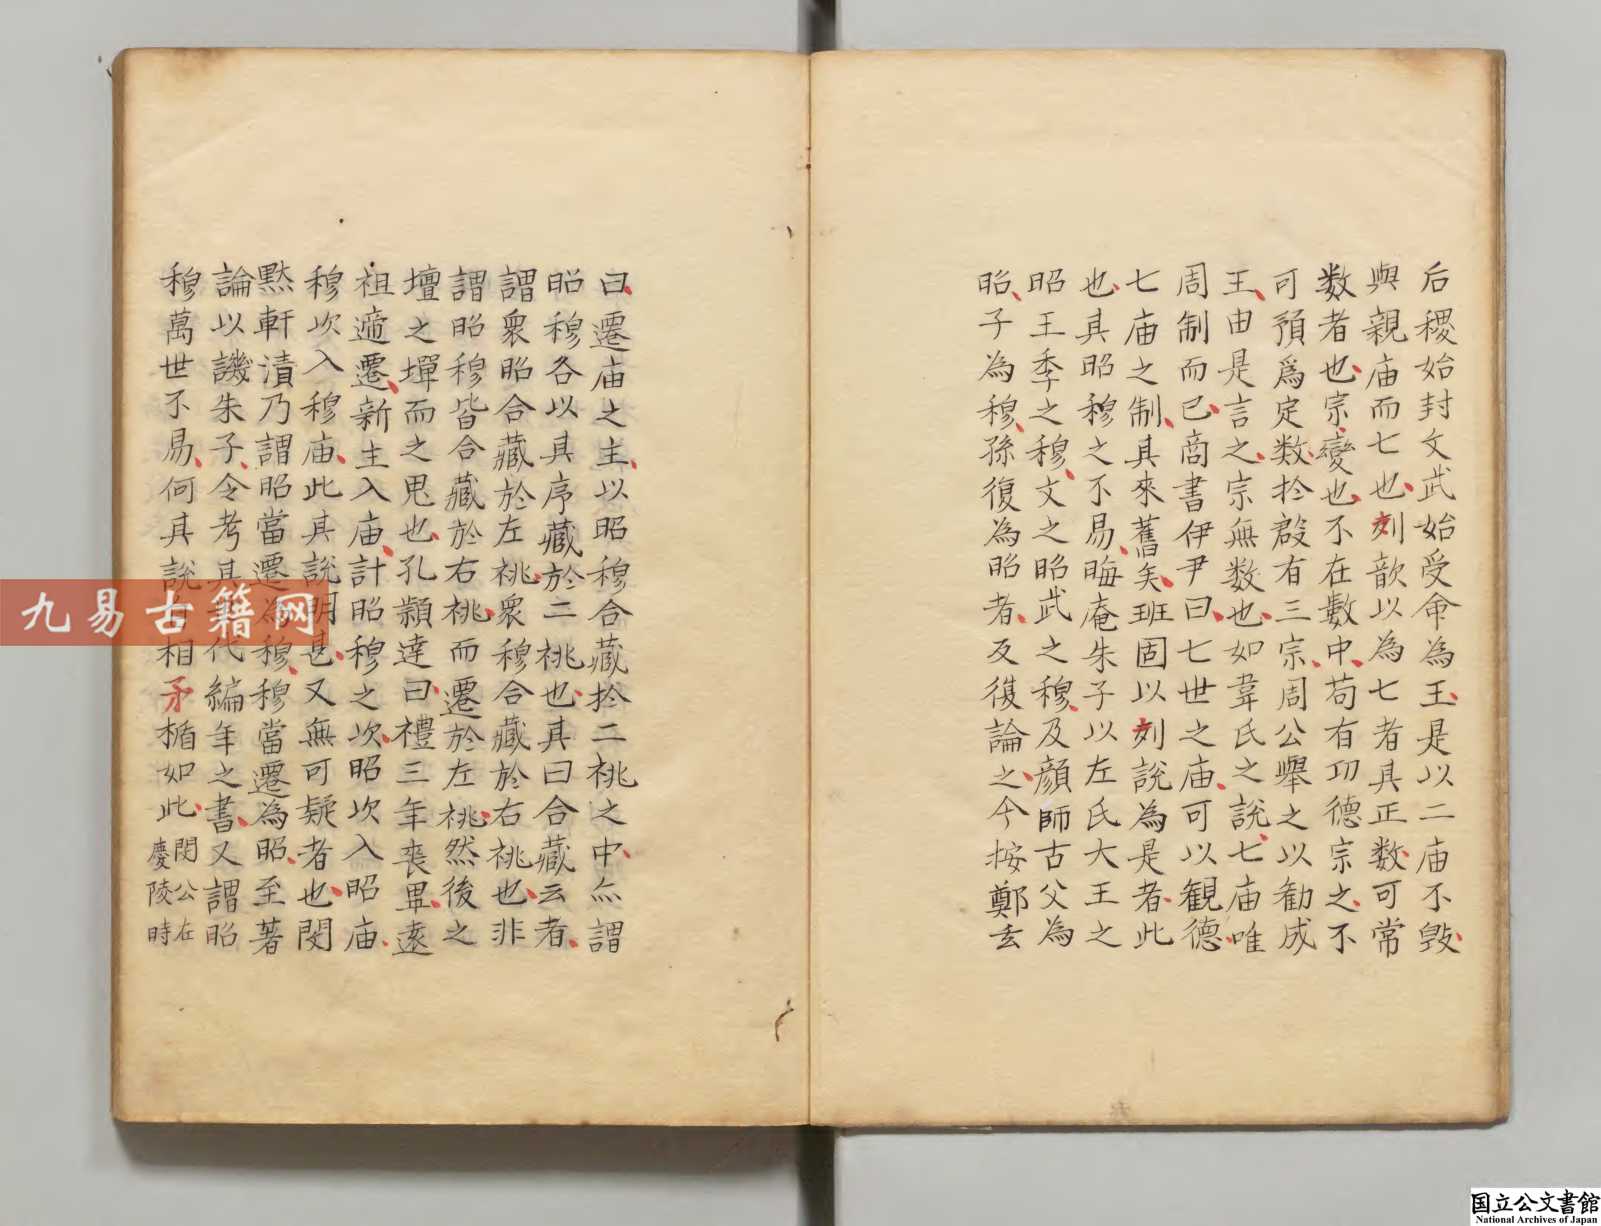 后稷始封文武始受命為王是以二庙不毀
與親庙而七也刘歆以為七者其正数可常
数者也宗變也不在數中苟有功德宗之不
可預爲定数扵殷有三宗周公舉之以勸成
王由是言之宗無数也如韋氏之説七庙唯
周制而已商書伊尹曰七世之庙可以観德
七庙之制其來舊矣班固以刘説為是者此
也其昭穆之不易晦庵朱子以左氏大王之
昭王季之穆文之昭武之穆及顔師古父為
昭子為穆孫復為昭者反復論之今按鄭玄
曰遷庙之主以昭穆合藏扵二祧之中亦謂
昭穆各以其序藏於二祧也其曰合藏云者
謂衆昭合藏於左祧衆穆合藏於右祧也非
謂昭穆皆合藏於右祧而遷於左祧然後之
壇之墠而之鬼也孔颖達曰禮三年喪畢遠
祖遞遷新主入庙計昭穆之次昭次入昭庙
穆次入穆庙此其説明甚又無可疑者也閔
黙軒漬乃謂昭當遷為穆穆當遷為昭至著
論以譏朱子令考其代編年之書又謂昭
穆萬世不易何其説相矛楯如此閔公在
慶陵時
九易古籍网
国立公文書館
National Archives of Japan